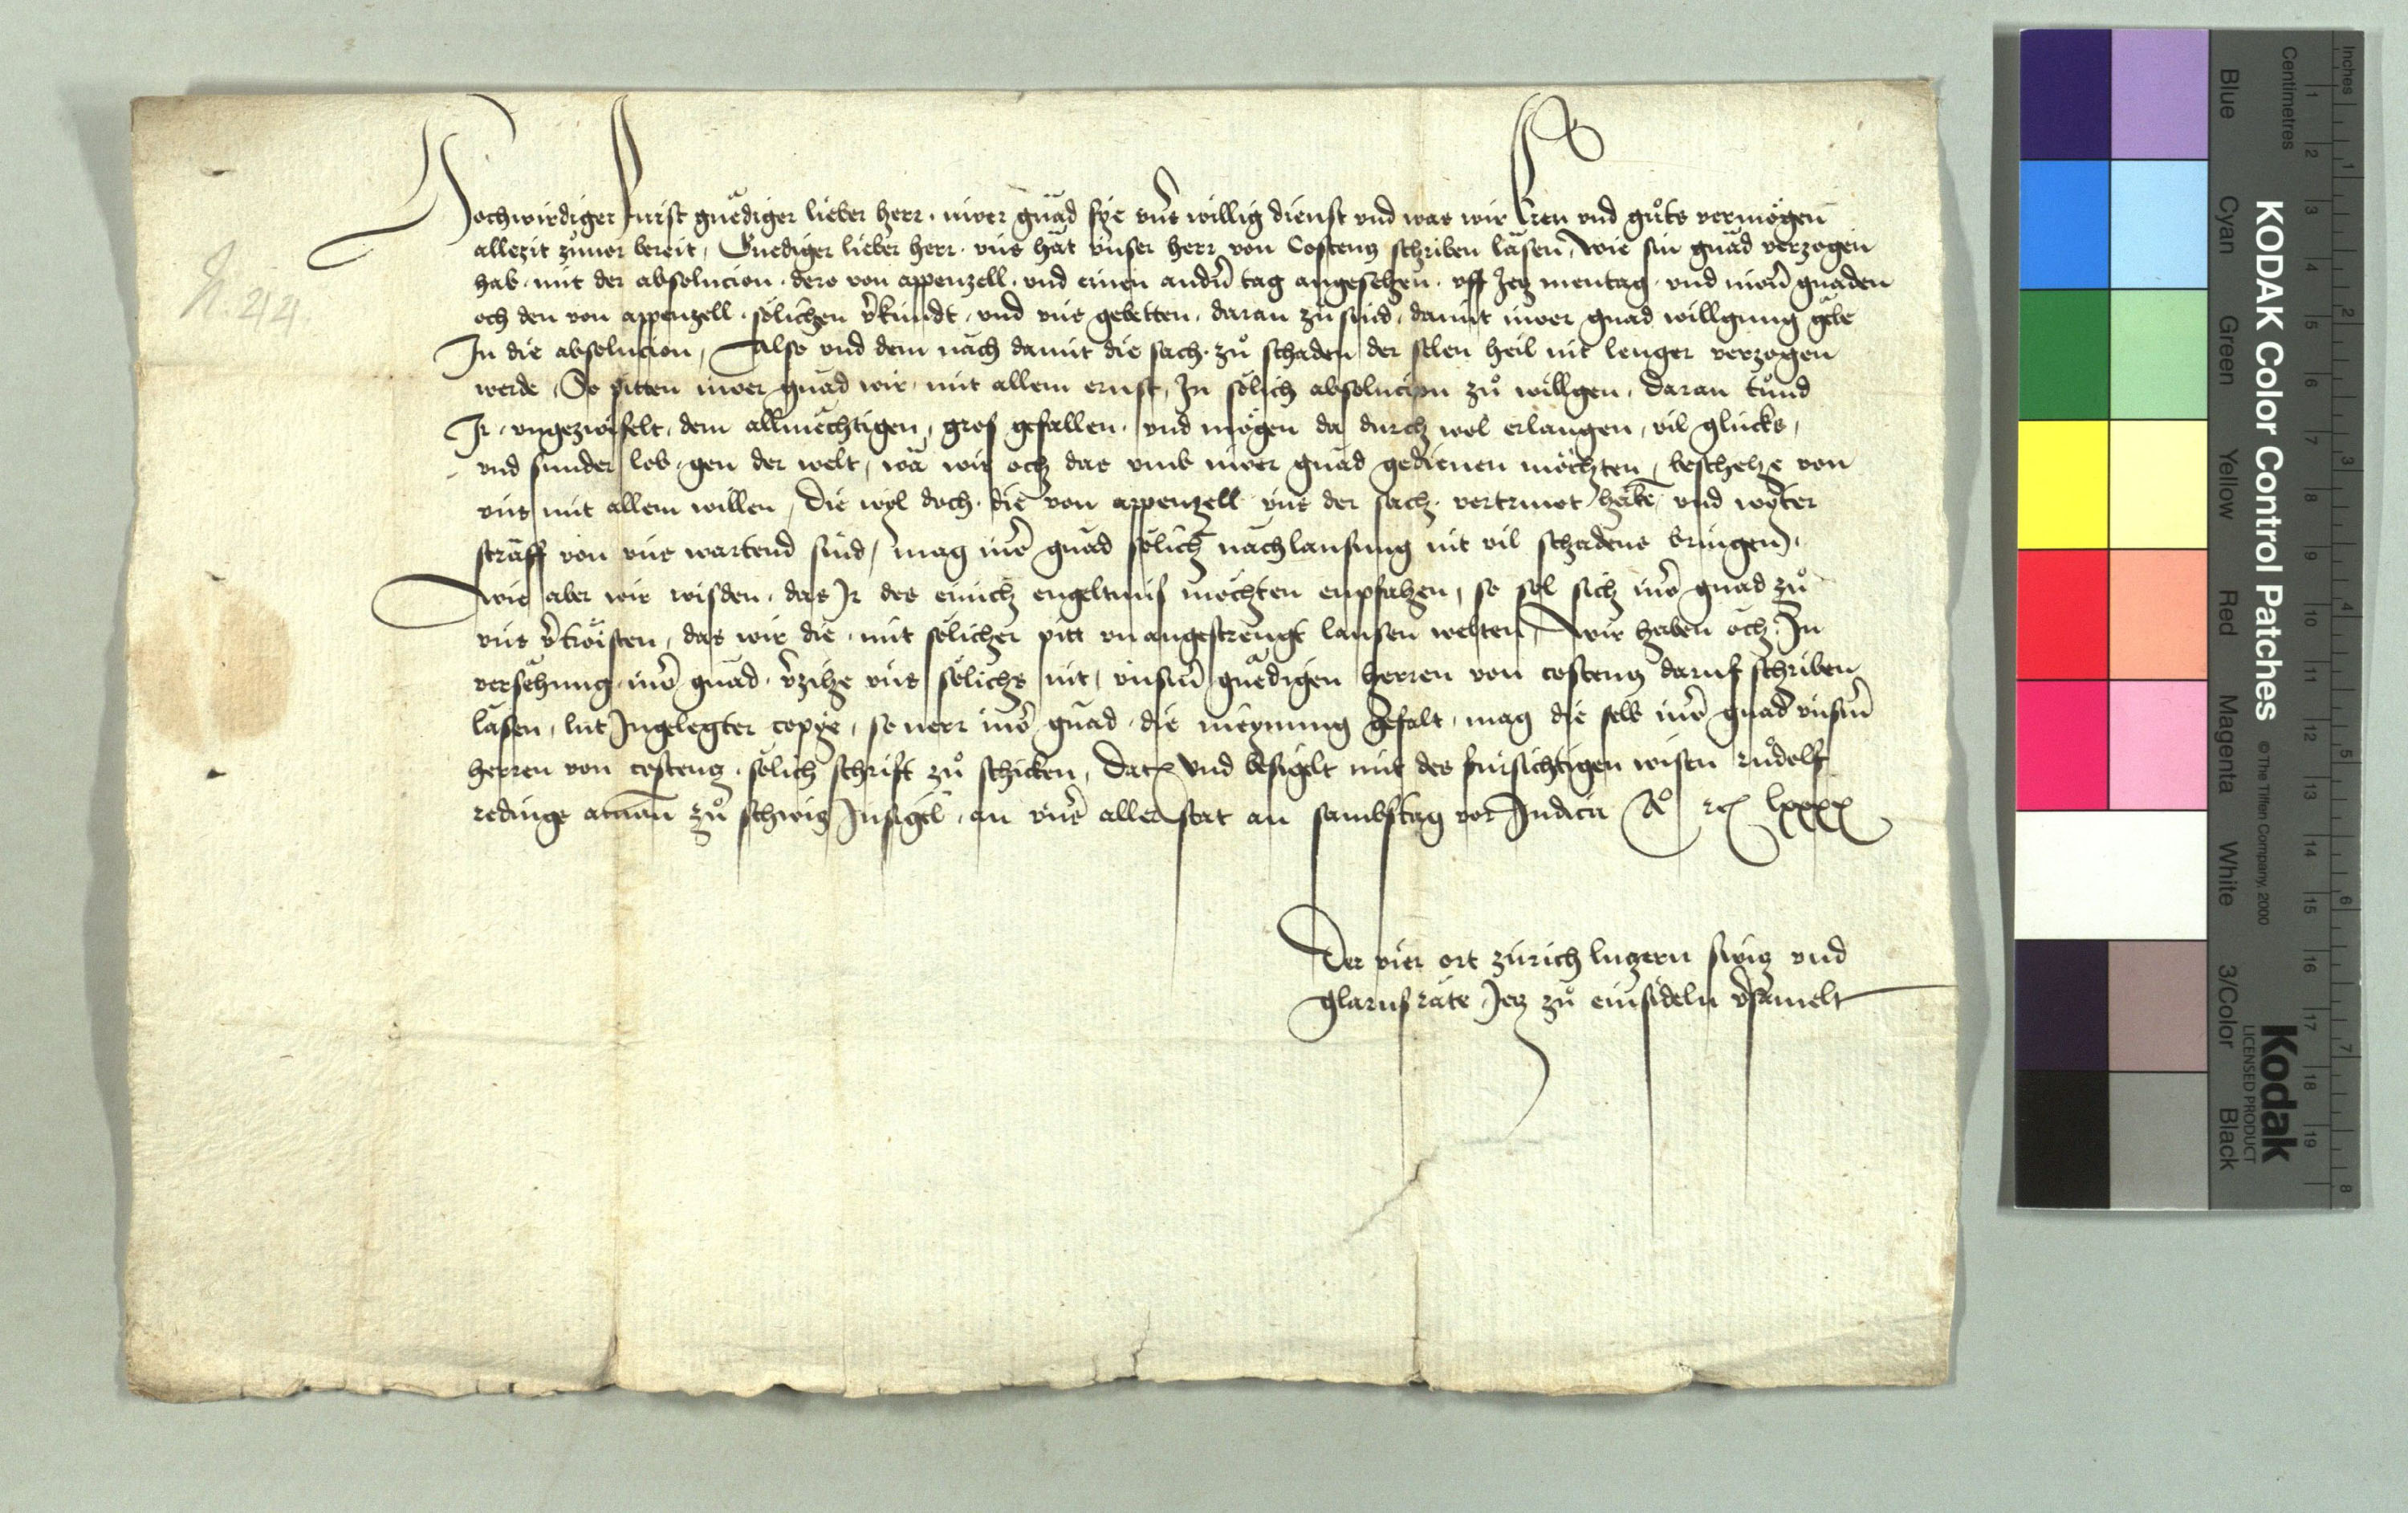 Hochwirdiger furst gnediger lieber herr. uiwer gnäd sye unser willig dienst und was wir Eren und guͦts vermögen
allezit zuuor bereit, Gnediger lieber herr. uns hät unser herr von Costentz schriben läsen, wie sin gnäd verzogen
hab. mit der absolucion. dero von appenzell. und einen andern tag angesehen. uff Jetz mentag. und uiwern gnaden
och den von appenzell. sölichen verkündt. und uns gebetten. daran zü sind. damit uiwer gnad willgung gebe
In die absolucion, Also und dem näch damit die sach. zuͦ schaden der selen heil nit lenger verzogen
werde, So pitten uiwer gnäd wir. mit allem ernst, In sölich absolucion zuͦ willgen. daran tuͦnd
Ir. ungezwifelt. dem allmechtigen, gros gefallen. und mögen da durch wol erlangen, vil glücks,
und sunder lob. gen der welt, wä wir och das umb uiwer gnäd gedienen möchten, beschehe von
uns mit allem willen, Die wyl doch. die von appenzell uns der sach. vertruwt haben und wyter
sträff von uns wartend sind, mag uiwer gnäd sölich nächlausung nit vil schadens bringen.
wie aber wir wisden. das Ir des einich engeltnis möchten enpfahen, so sol sich uiwer gnad zuͦ
uns vertröisten, das wir die. mit sölicher pitt unangestrengt lausen welten, wir haben och In
versehung. uiwer gnäd. verzihe uns sölichs nit, unserm gnedigen herren von costentz daruf schriben
läsen, lut Ingelegter copye, so uerr uiwer gnäd. die meynung gefalt. mag die selb uiwer gnad unserm
herren von costentz. sölich schrift zuͦ schicken, Dat. und besigelt mit des fürsichtigen wisen ruͦdolf
redings amman zuͦ schwitz Insigel. an unser aller stat an sambstag vor Judica Aͦ etc lxxxx
Der vier ort zürich luzern switz und
glarus räte Jetz zuͦ einsideln versamelt
N. 44.
KODAK Color Control Patches
© The Tiffen Company, 2000
Kodak
LICENSED PRODUCT
Inches
Centimetres
Blue
Cyan
Green
Yellow
Red
Magenta
White
3/Color
Black
1 2 3 4 5 6 7 8 9 10 11 12 13 14 15 16 17 18 19
1 2 3 4 5 6 7 8